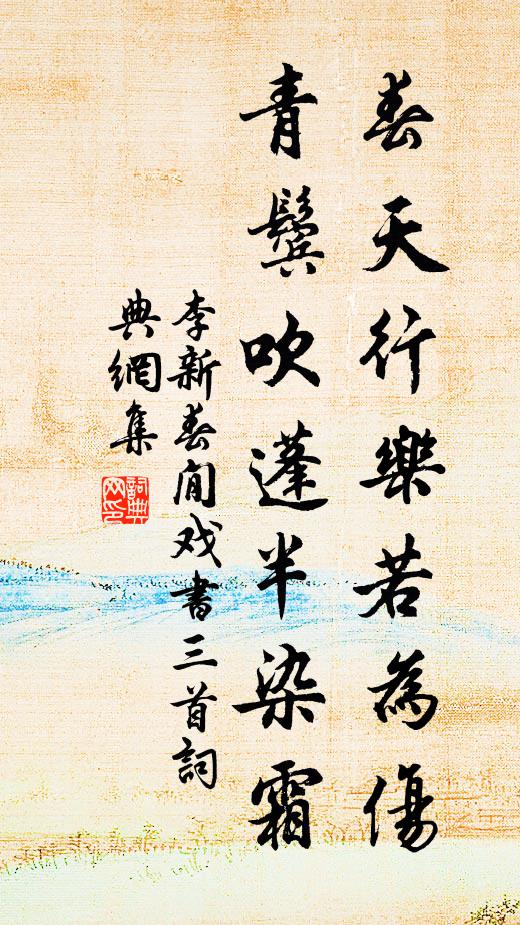 春天行樂若為傷
青鬢吹蓬半染霜
李新春閒戏書三首詞
典網集
詞典
网印